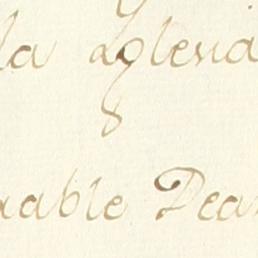 la Yglesia
able Dea